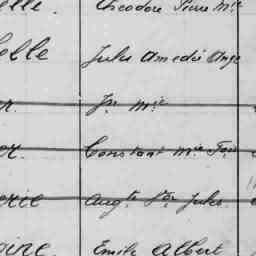 elle. Théodore Pierre Mie
elle Jules Amédée Ange
Jn Mie
Constant Mie Fois
erie Augte Jules
Emile Albert